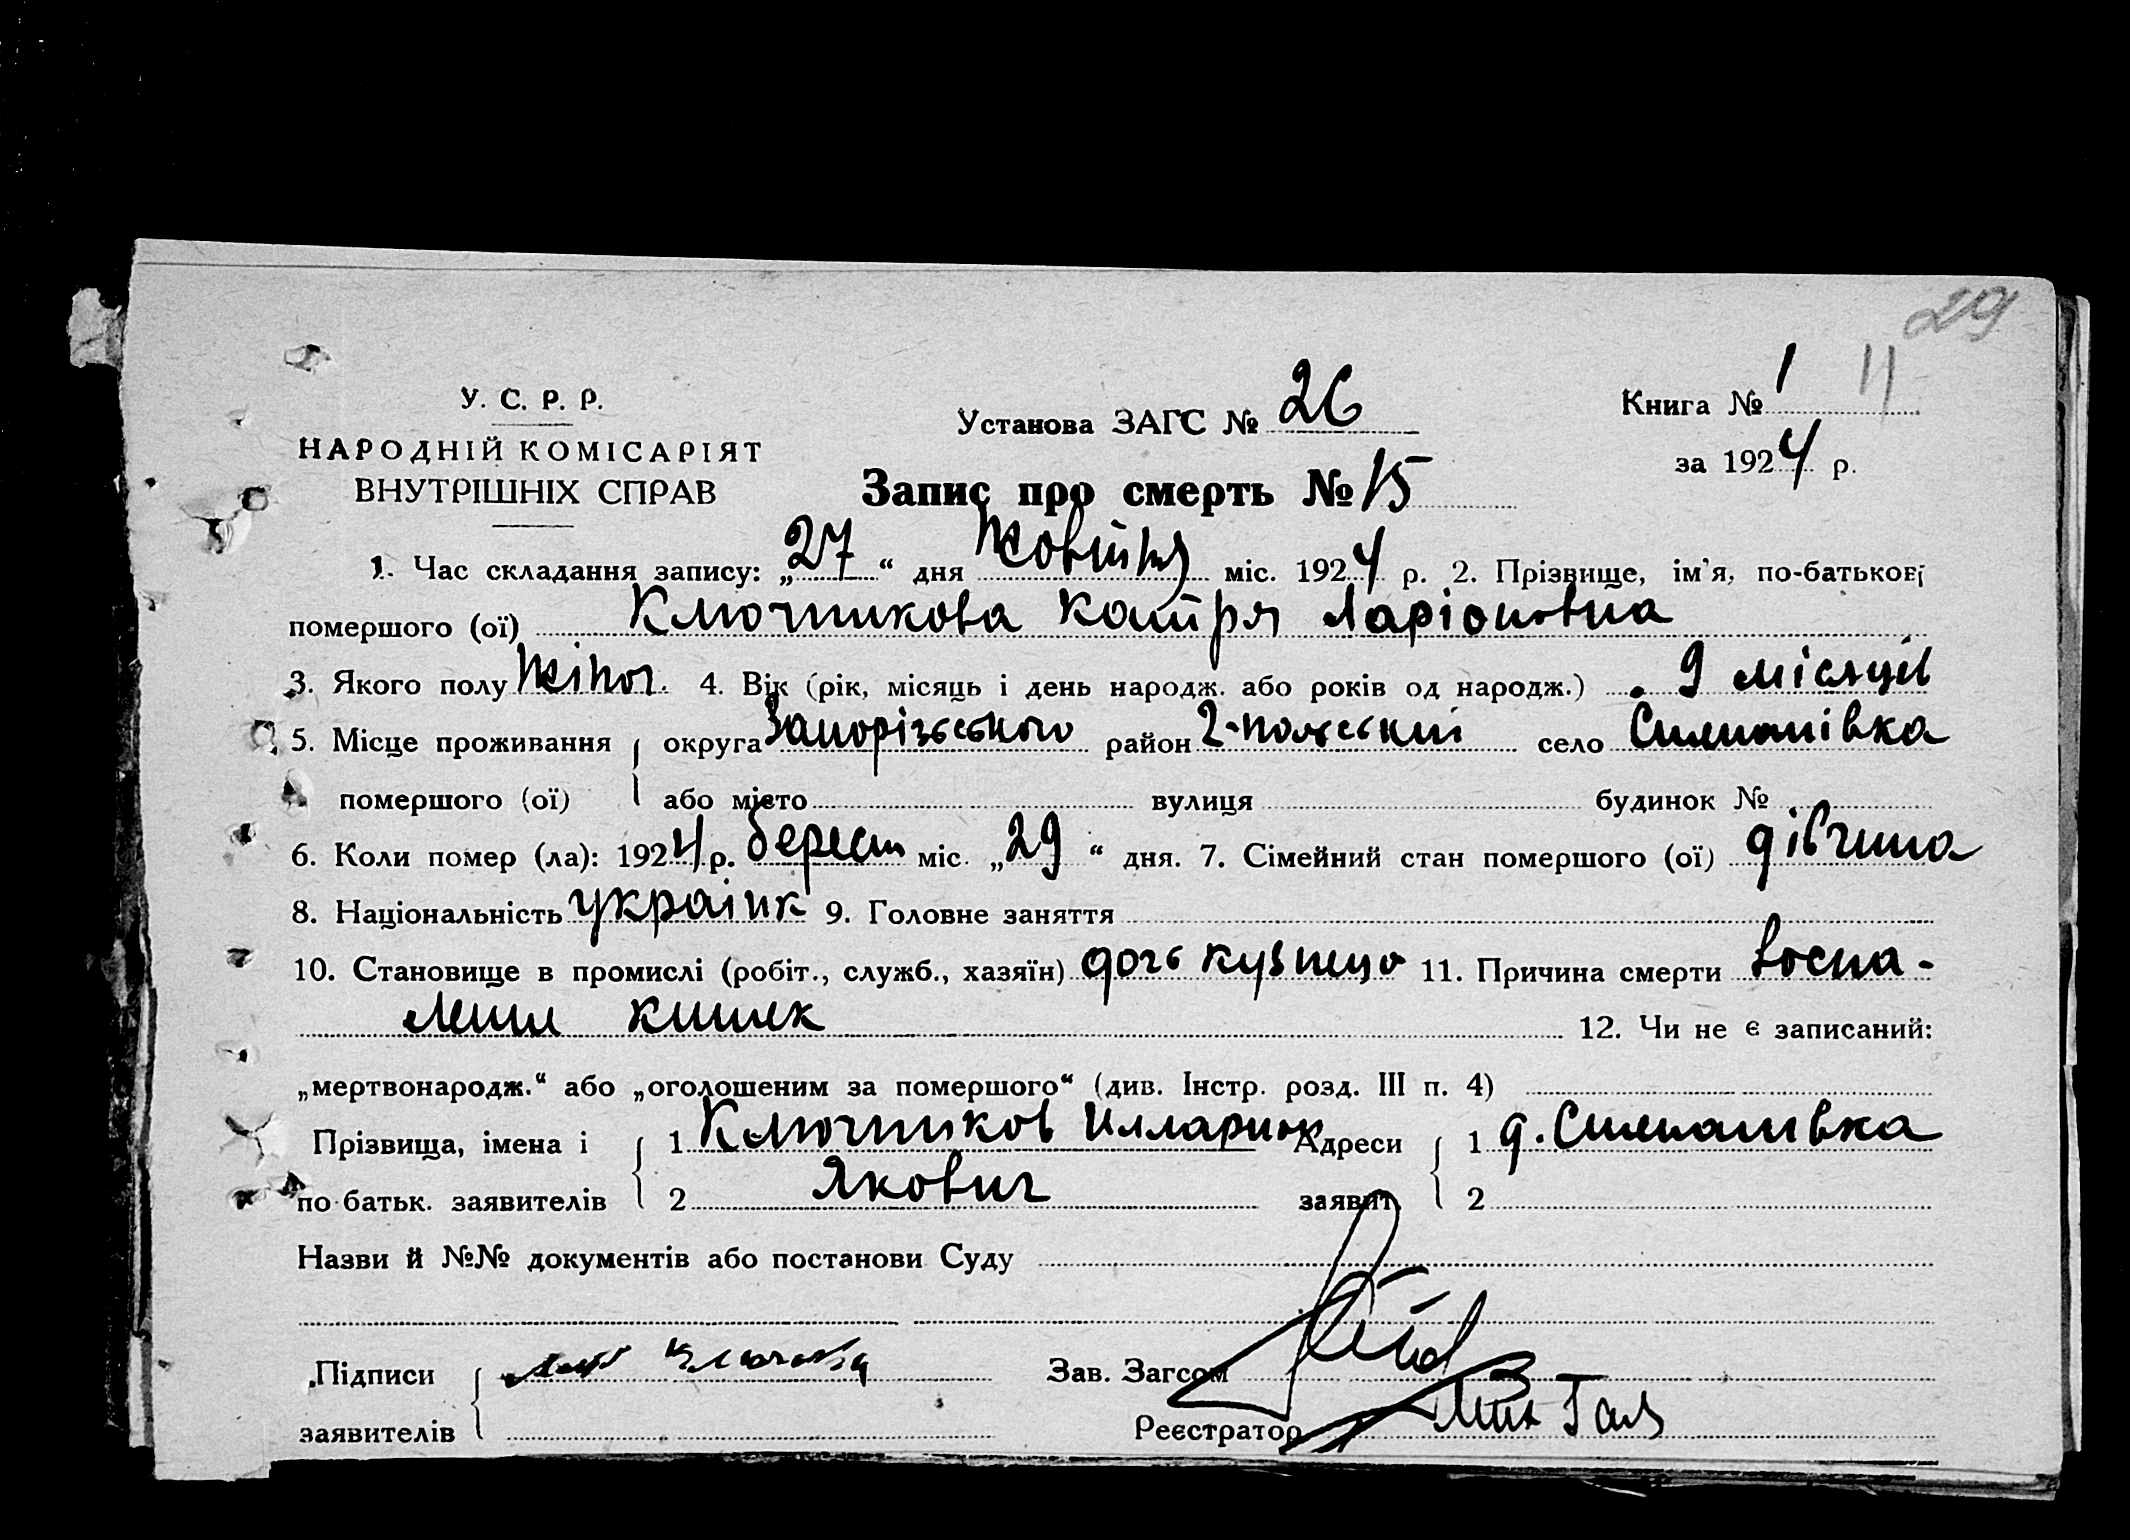 29
У. С. Р. Р.
Установа ЗАГС № 26
Книга № 1 11
НАРОДНІЙ КОМІСАРІЯТ
ВНУТРІШНІХ СПРАВ
за 1924 р.
Запис про смерть № 15
1. Час складання запису: „27“ дня Жовтня міс. 1924 р. 2. Прізвище, ім'я, по-батькові
помершого (ої) Ключникова Катря Ларіоновна
3. Якого полу жіноч. 4. Вік (рік, місяць і день народж. або років од народж.) 9 місяців
5. Місце проживання { округа Запорізського район 2-польский село Симонівка
помершого (ої) або місто вулиця будинок №
6. Коли помер (ла): 1924 р. берест міс. „29“ дня. 7. Сімейний стан помершого (ої) дівчина
8. Національність українк 9. Головне заняття
10. Становище в промислі (робіт., служб., хазяїн) дочь кузнеца 11. Причина смерти воспа-
лении кишек 12. Чи не є записаний:
„мертвонародж.“ або „оголошеним за помершого“ (див. Інстр. розд. III п. 4)
Прізвища, імена і { 1 Ключников Илларион Адреси { 1 д. Симонивка
по батьк. заявителів 2 Якович заявит. 2
Назви й №№ документів або постанови Суду
Підписи { Зав. Загсом
заявителів Реєстратор